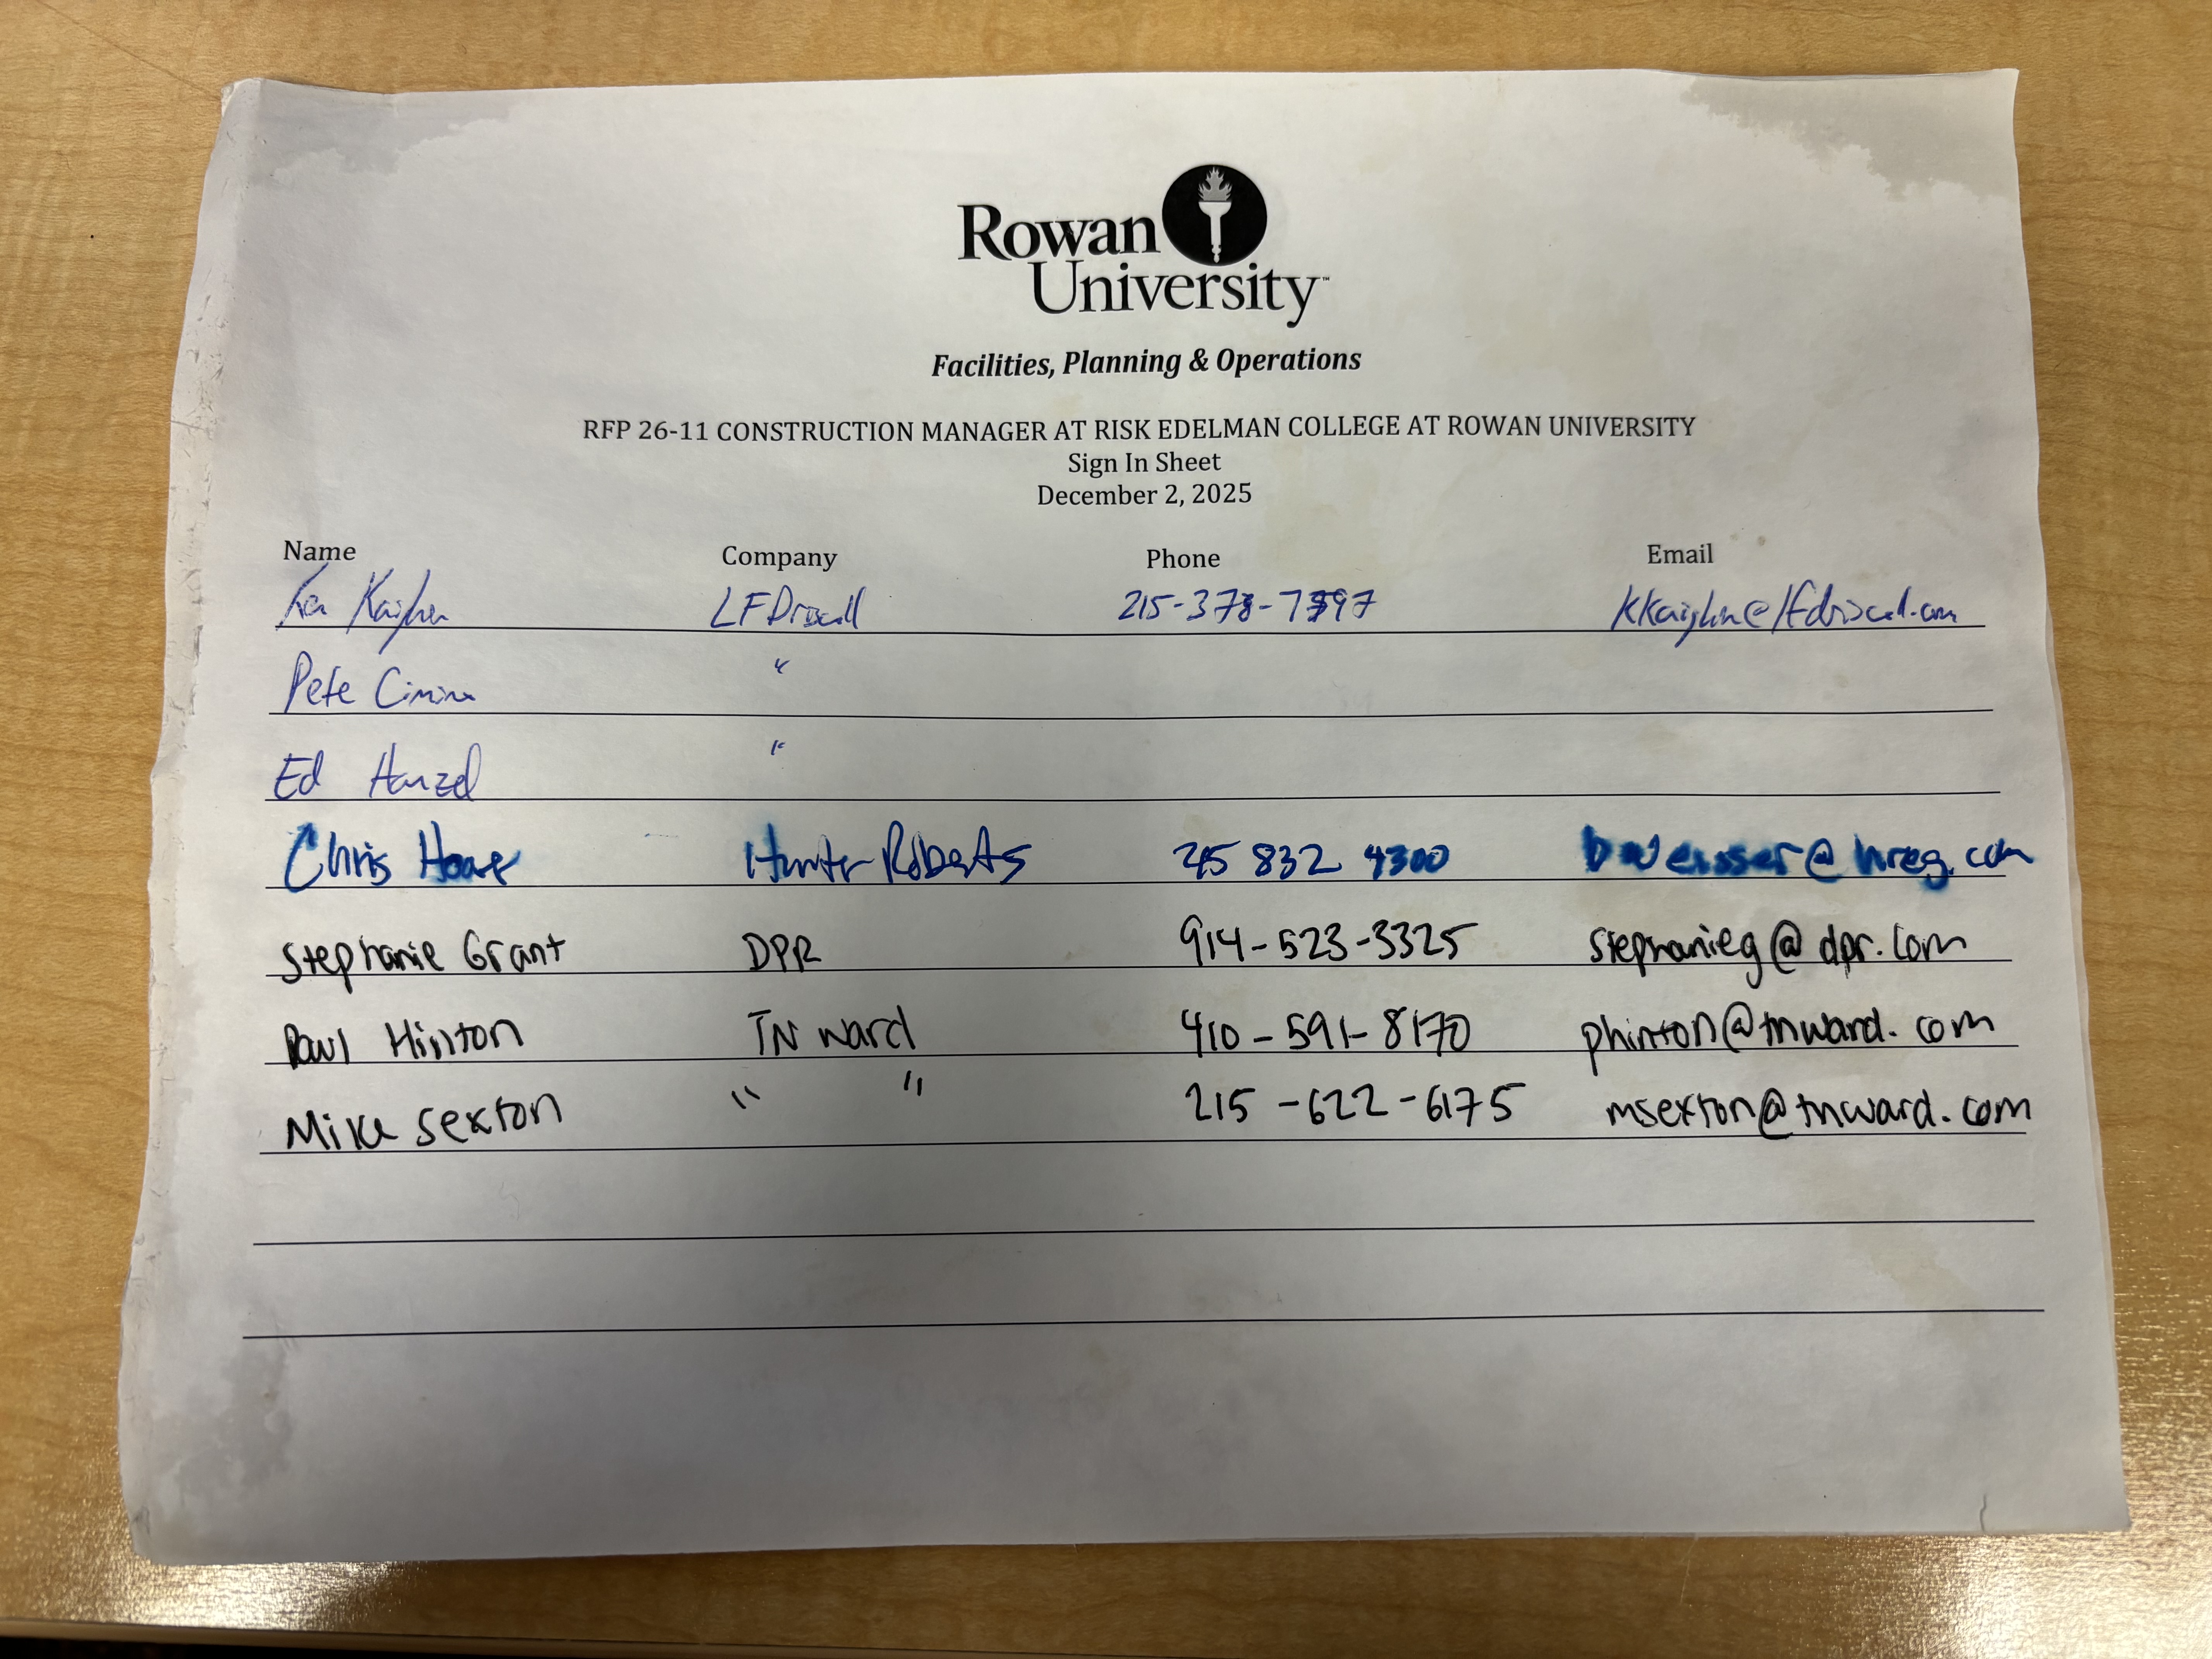 Rowan
University™
Facilities, Planning & Operations
RFP 26-11 CONSTRUCTION MANAGER AT RISK EDELMAN COLLEGE AT ROWAN UNIVERSITY
Sign In Sheet
December 2, 2025
Name Company Phone Email
LFDriscoll
Pete "
Ed Hanzel "
Chris Hunter Roberts 215 832 4300
Stephanie Grant DPR 914-523-3325 stephanieg@dpr.com
Paul Hinton TN ward 410-591-8170 phinton@tnward.com
Mike Sexton " " 215-622-6175 msexton@tnward.com